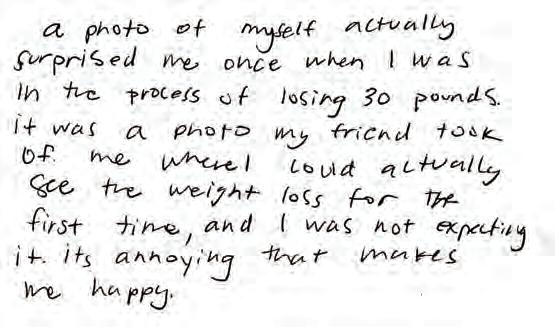 a photo of myself actually
surprised me once when I was
in the process of losing 30 pounds.
it was a photo my friend took
of me where I could actually
see the weight loss for the
first time, and I was not expecting
it. its annoying that makes
me happy.